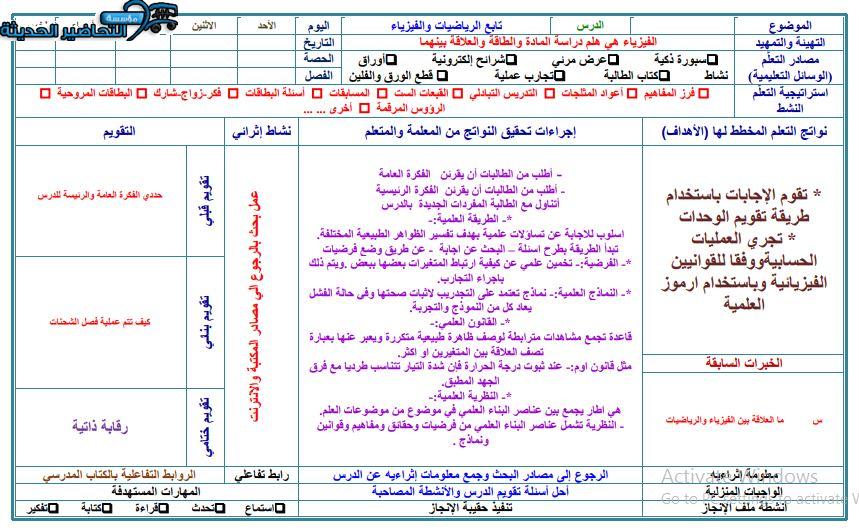 مؤسسة
التحاضير الحديثة
الموضوع
الدرس
تابع الرياضيات والفيزياء
اليوم
الأحد
الاثنين
التهيئة والتمهيد
الفيزياء هي هلم دراسة المادة والطاقة والعلاقة بينهما
التاريخ
مصادر التعلّم
(الوسائل التعليمية)
سبورة ذكية
عرض مرئي
شرائح إلكترونية
أوراق
نشاط
كتاب الطالبة
تجارب عملية
قطع الورق والفلين
الحصة
الفصل
استراتيجية التعلّم
النشط
فرز المفاهيم
أعواد المثلجات
التدريس التبادلي
القبعات الست
المسابقات
أسئلة البطاقات
فكر-زواج-شارك
البطاقات المروحية
الرؤوس المرقمة
أخرى ... ...
نواتج التعلم المخطط لها (الأهداف)
إجراءات تحقيق النواتج من المعلمة والمتعلم
نشاط إثرائي
التقويم
* تقوم الإجابات باستخدام
طريقة تقويم الوحدات
* تجري العمليات
الحسابيةووفقا للقوانيين
الفيزيائية وباستخدام ارموز
العلمية
الخبرات السابقة
س ما العلاقة بين الفيزياء والرياضيات
– أطلب من الطالبات أن يقرئن الفكرة العامة
- أطلب من الطالبات أن يقرئن الفكرة الرئيسية
أتناول مع الطالبة المفردات الجديدة بالدرس
*- الطريقة العلمية:-
اسلوب للاجابة عن تساؤلات علمية بهدف تفسير الظواهر الطبيعية المختلفة.
تبدأ الطريقة بطرح اسئلة – البحث عن اجابة - عن طريق وضع فرضيات
*- الفرضية:- تخمين علمي عن كيفية ارتباط المتغيرات بعضها ببعض .ويتم ذلك
باجراء التجارب.
*- النماذج العلمية:- نماذج تعتمد على التجريب لاثبات صحتها وفى حالة الفشل
يعاد كل من النموذج والتجربة.
*- القانون العلمي:-
قاعدة تجمع مشاهدات مترابطة لوصف ظاهرة طبيعية متكررة ويعبر عنها بعبارة
تصف العلاقة بين المتغيرين او اكثر.
مثل قانون اوم:- عند ثبوت درجة الحرارة فإن شدة التيار تتناسب طرديا مع فرق
الجهد المطبق.
*- النظرية العلمية:-
هي اطار يجمع بين عناصر البناء العلمي في موضوع من موضوعات العلم.
- النظرية تشمل عناصر البناء العلمي من فرضيات وحقائق ومفاهيم وقوانين
ونماذج .
عمل بحث بالرجوع الي مصادر المكتبة والانترنت
تقويم قبلي
حددي الفكرة العامة والرئيسة للدرس
تقويم بنائي
كيف تتم عملية فصل الشحنات
تقويم ختامي
رقابة ذاتية
إثرائيه
الرجوع إلى مصادر البحث وجمع معلومات إثراءيه عن الدرس
رابط تفاعلي
الروابط التفاعلية بالكتاب المدرسي
الواجبات المنزلية
أحل أسئلة تقويم الدرس والأنشطة المصاحبة
المهارات المستهدفة
أنشطة ملف الإنجاز
تنفيذ حقيبة الإنجاز
استماع
تحدث
قراءة
كتابة
تفكير
Activate Windows
Go to to activate W